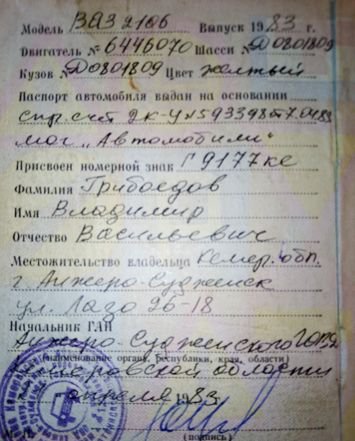 Модель ВАЗ 2106 Выпуск 1983 г.
Двигатель № 6446070 Шасси № Д0801809
Кузов № Д0801809 Цвет желтый
Паспорт автомобиля выдан на основании
спр. счет 2К-У №593398 от 7.04.83
маг "Автомобили"
Присвоен номерной знак Г9177ке
Фамилия Грибоедов
Имя Владимир
Отчество Васильевич
Местожительство владельца Кемер. обл.
г. Анжеро-Судженск
ул. Лазо 26-18
Начальник ГАИ
Анжеро-Судженского
(наименование орган, республики, края, области)
области
апреля 1983
(подпись)